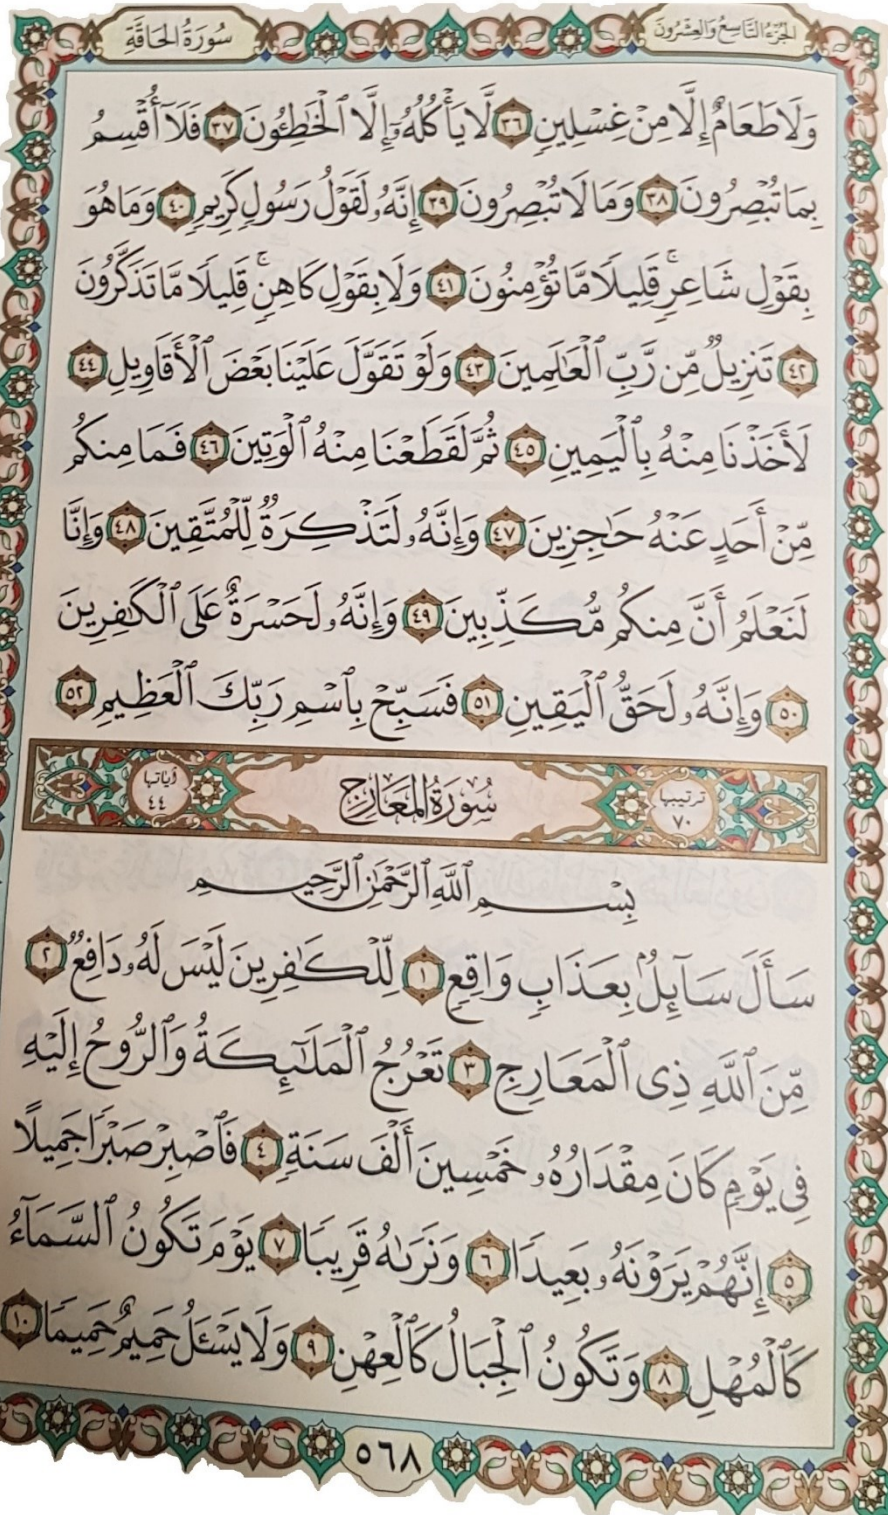 الجزء التاسع والعشرون
سورة الحاقة
وَلَا طَعَامٌ إِلَّا مِنْ غِسْلِينٍ ٣٦ لَّا يَأْكُلُهُۥٓ إِلَّا ٱلْخَٰطِـُٔونَ ٣٧ فَلَآ أُقْسِمُ
بِمَا تُبْصِرُونَ ٣٨ وَمَا لَا تُبْصِرُونَ ٣٩ إِنَّهُۥ لَقَوْلُ رَسُولٍ كَرِيمٍ ٤٠ وَمَا هُوَ
بِقَوْلِ شَاعِرٍ ۚ قَلِيلًا مَّا تُؤْمِنُونَ ٤١ وَلَا بِقَوْلِ كَاهِنٍ ۚ قَلِيلًا مَّا تَذَكَّرُونَ
٤٢ تَنزِيلٌ مِّن رَّبِّ ٱلْعَٰلَمِينَ ٤٣ وَلَوْ تَقَوَّلَ عَلَيْنَا بَعْضَ ٱلْأَقَاوِيلِ ٤٤
لَأَخَذْنَا مِنْهُ بِٱلْيَمِينِ ٤٥ ثُمَّ لَقَطَعْنَا مِنْهُ ٱلْوَتِينَ ٤٦ فَمَا مِنكُم
مِّنْ أَحَدٍ عَنْهُ حَٰجِزِينَ ٤٧ وَإِنَّهُۥ لَتَذْكِرَةٌ لِّلْمُتَّقِينَ ٤٨ وَإِنَّا
لَنَعْلَمُ أَنَّ مِنكُم مُّكَذِّبِينَ ٤٩ وَإِنَّهُۥ لَحَسْرَةٌ عَلَى ٱلْكَٰفِرِينَ
٥٠ وَإِنَّهُۥ لَحَقُّ ٱلْيَقِينِ ٥١ فَسَبِّحْ بِٱسْمِ رَبِّكَ ٱلْعَظِيمِ ٥٢
ترتيبها ٧٠ سورة المعارج آياتها ٤٤
بِسْمِ ٱللَّهِ ٱلرَّحْمَٰنِ ٱلرَّحِيمِ
سَأَلَ سَآئِلٌۢ بِعَذَابٍ وَاقِعٍ ١ لِّلْكَٰفِرِينَ لَيْسَ لَهُۥ دَافِعٌ ٢
مِّنَ ٱللَّهِ ذِى ٱلْمَعَارِجِ ٣ تَعْرُجُ ٱلْمَلَٰٓئِكَةُ وَٱلرُّوحُ إِلَيْهِ
فِى يَوْمٍ كَانَ مِقْدَارُهُۥ خَمْسِينَ أَلْفَ سَنَةٍ ٤ فَٱصْبِرْ صَبْرًا جَمِيلًا
٥ إِنَّهُمْ يَرَوْنَهُۥ بَعِيدًا ٦ وَنَرَىٰهُ قَرِيبًا ٧ يَوْمَ تَكُونُ ٱلسَّمَآءُ
كَٱلْمُهْلِ ٨ وَتَكُونُ ٱلْجِبَالُ كَٱلْعِهْنِ ٩ وَلَا يَسْـَٔلُ حَمِيمٌ حَمِيمًا ١٠
٥٦٨